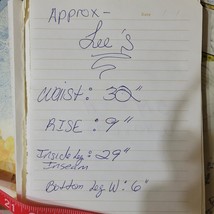 Approx -
Lee's
WAIST: 32"
RISE: 9"
Inside Leg: 29"
Inseam
Bottom Leg W: 6"
21